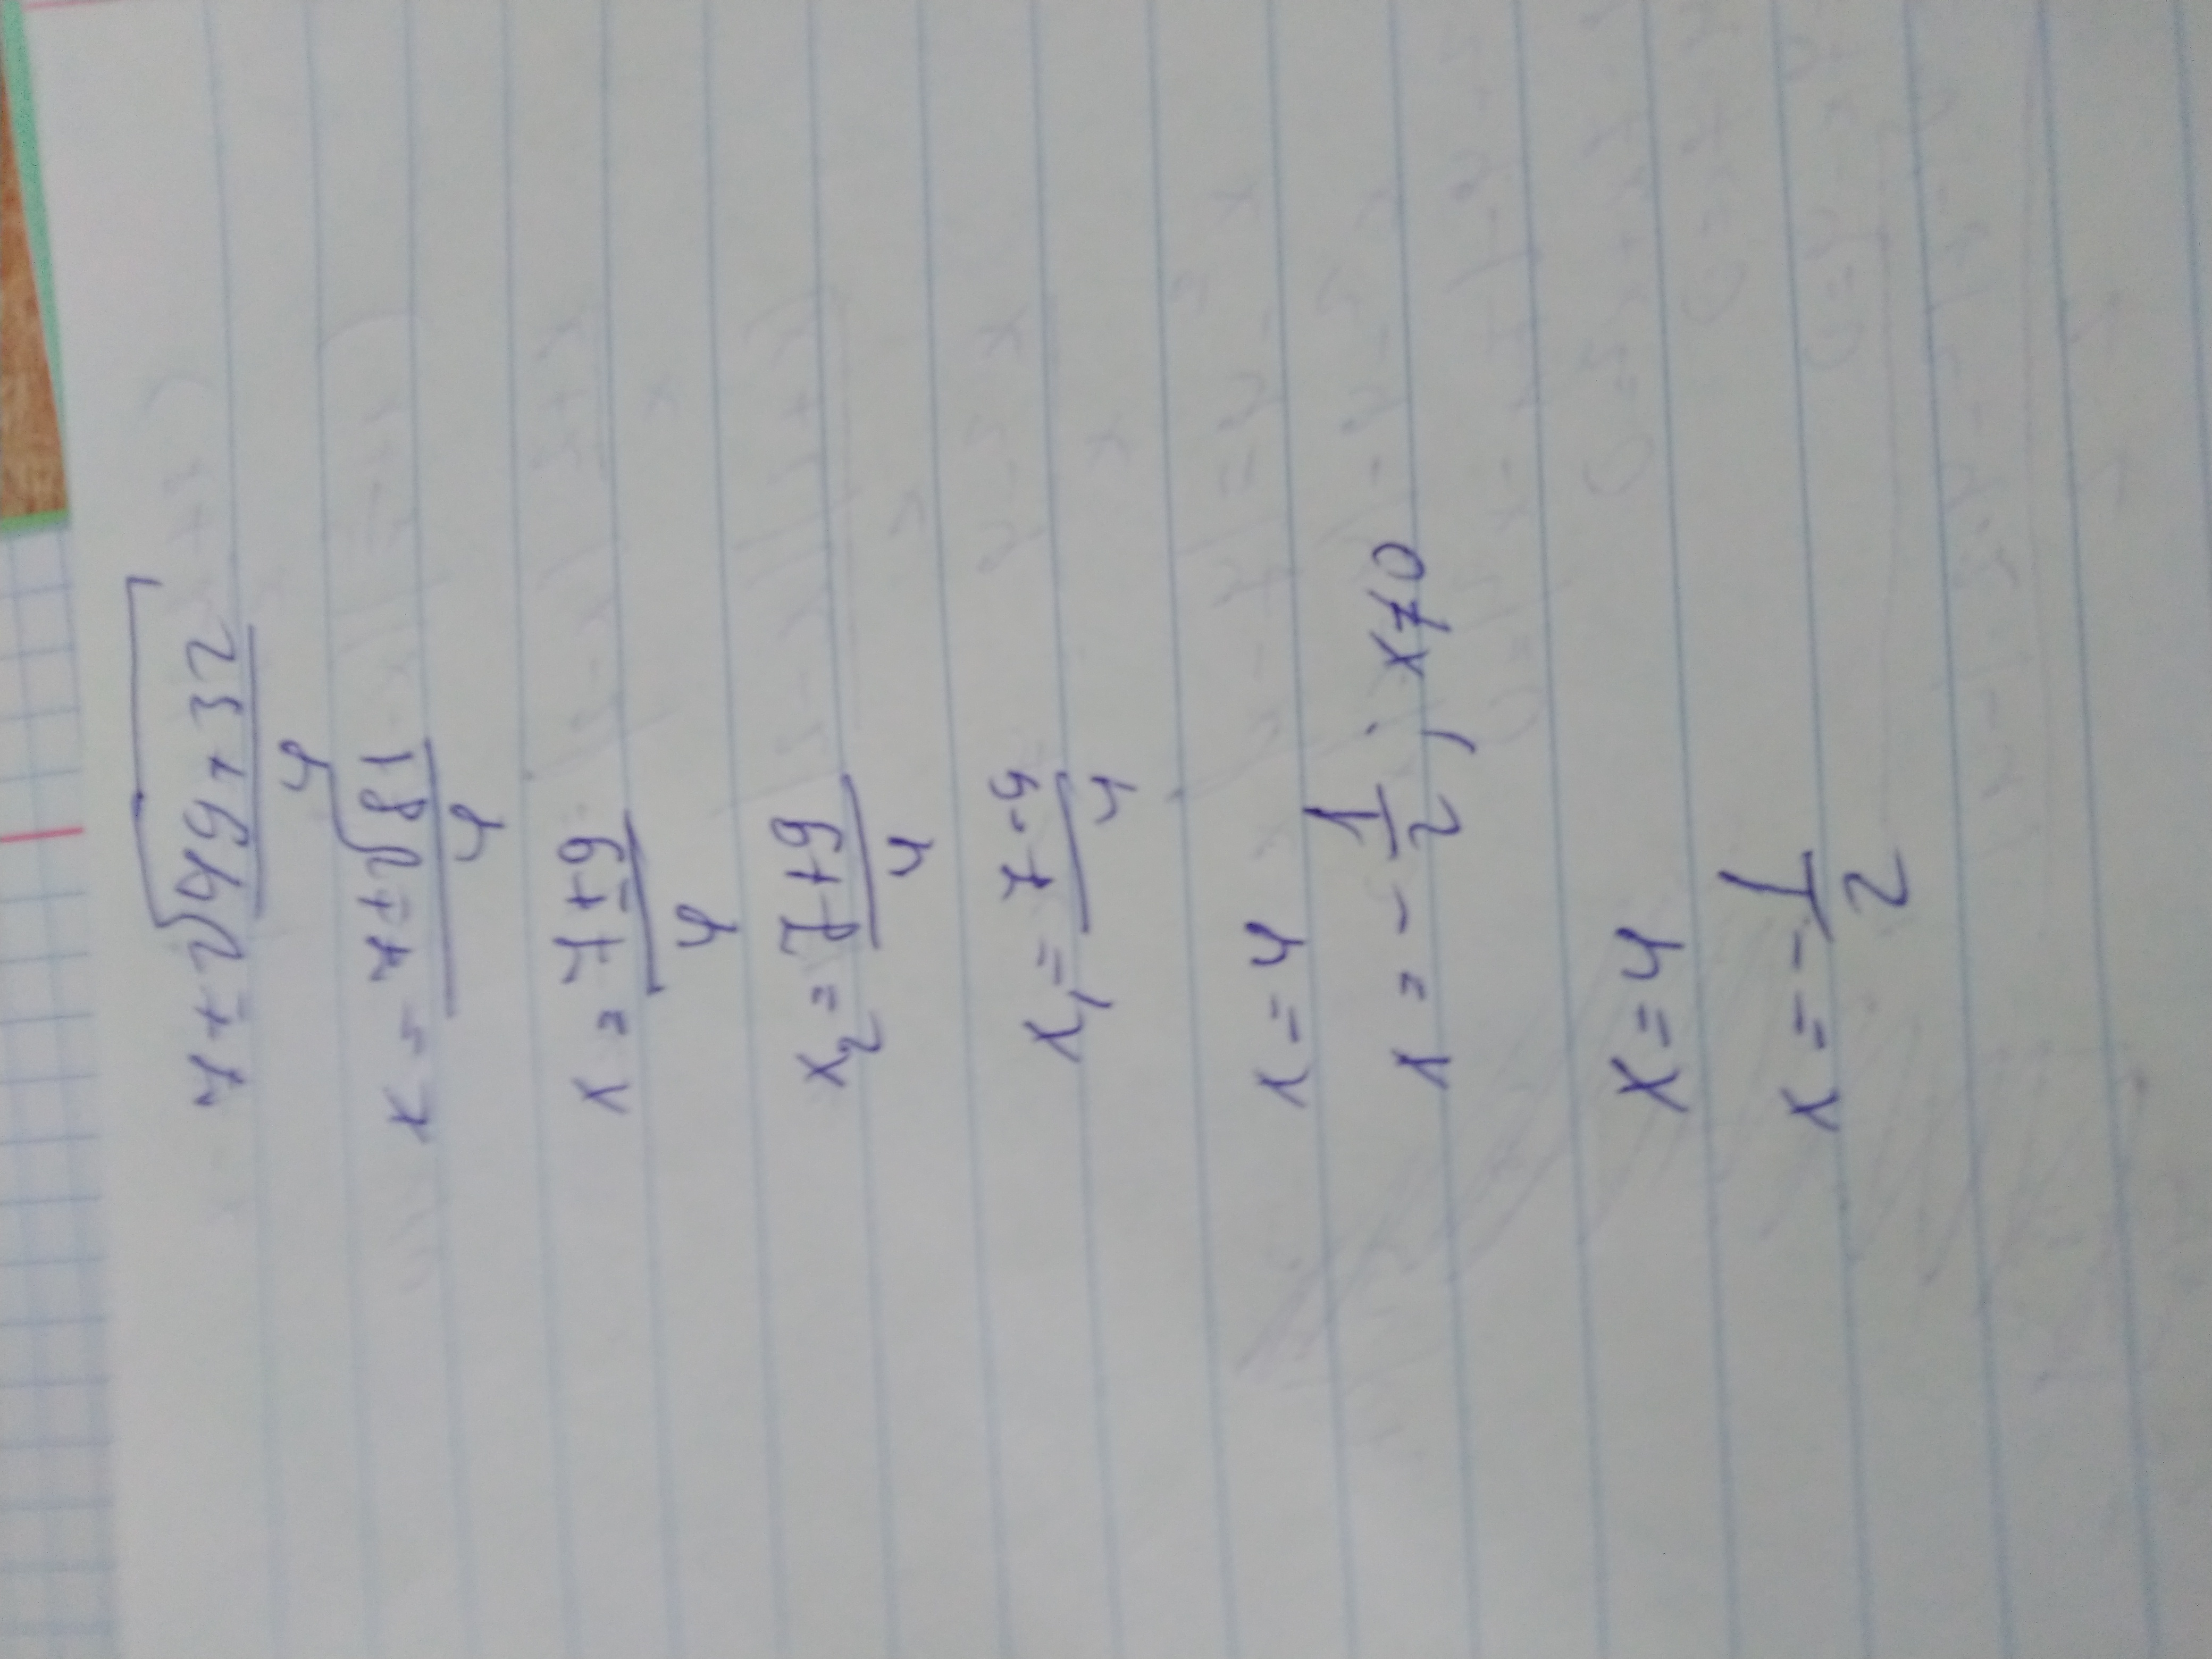 7 ± √49 + 32 / 4
x = 7 ± √81 / 4
x = 7 ± 9 / 4
x₂ = 7 + 9 / 4
x₁ = 7 - 9 / 4
x = 4
x = - 1/2 ; x ≠ 0
x = 4
x = - 1/2